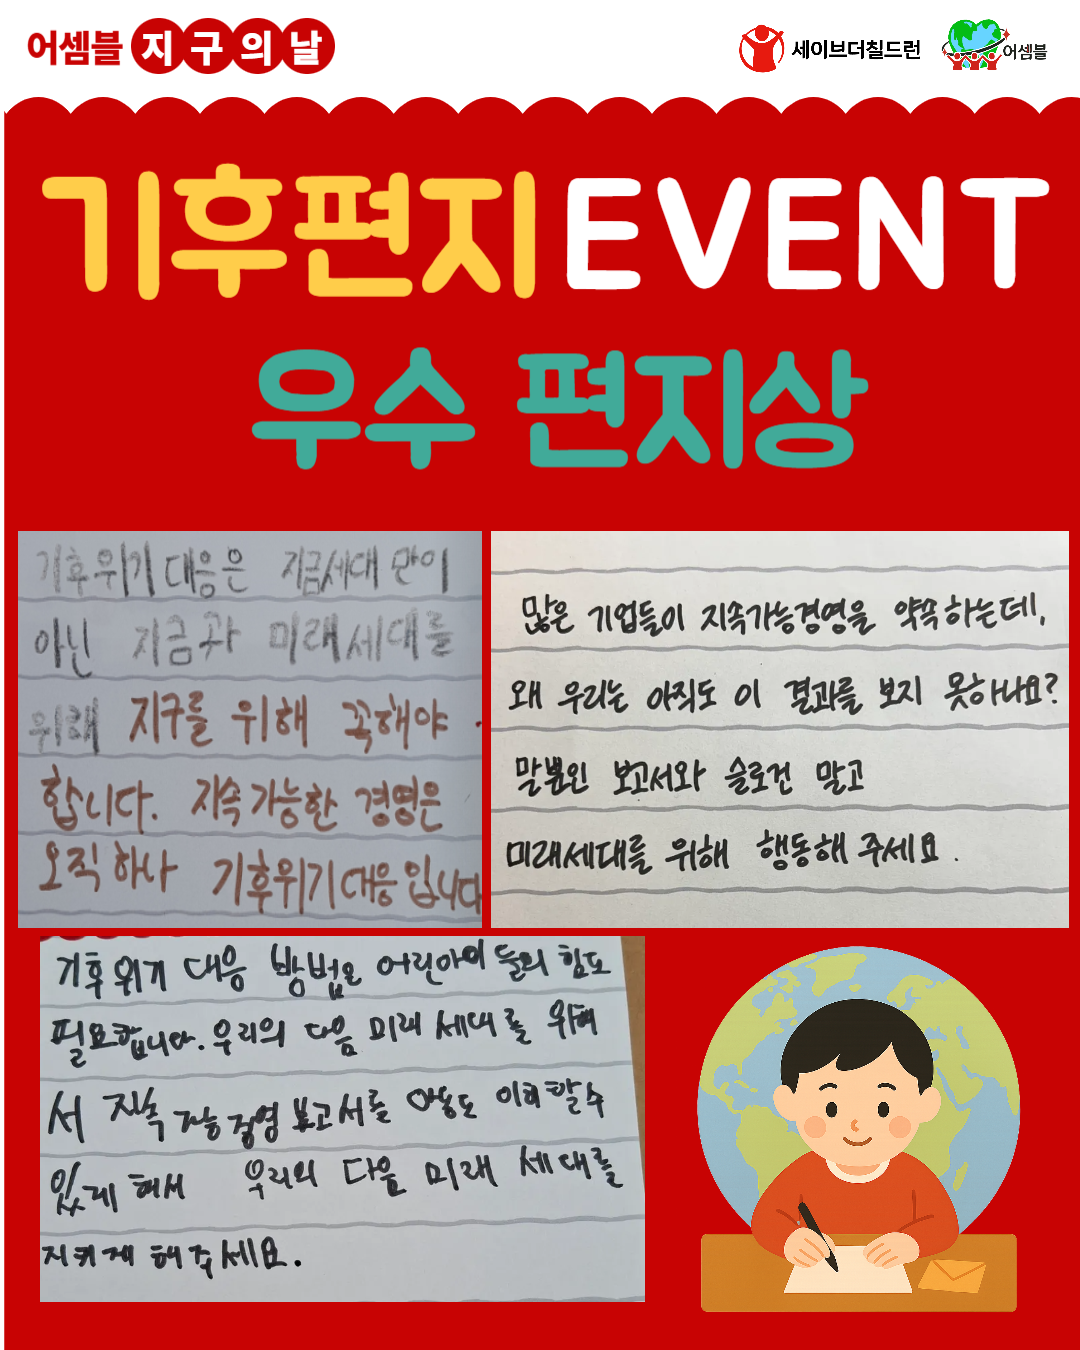 어셈블 지구의날
세이브더칠드런
어셈블
기후편지 EVENT
우수 편지상
기후위기 대응은 지금세대 만이
아닌 지금과 미래세대를
위해 지구를 위해 꼭해야
합니다. 지속가능한 경영은
오직 하나 기후위기대응입니다
많은 기업들이 지속가능경영을 약속하는데,
왜 우리는 아직도 이 결과를 보지 못하나요?
말뿐인 보고서와 슬로건 말고
미래세대를 위해 행동해 주세요.
기후 위기 대응 방법은 어린아이 들의 힘도
필요합니다. 우리의 다음 미래 세대를 위해
서 지속 가능 경영 보고서를 아동도 이해 할수
있게 해서 우리의 다음 미래 세대를
지키게 해주세요.